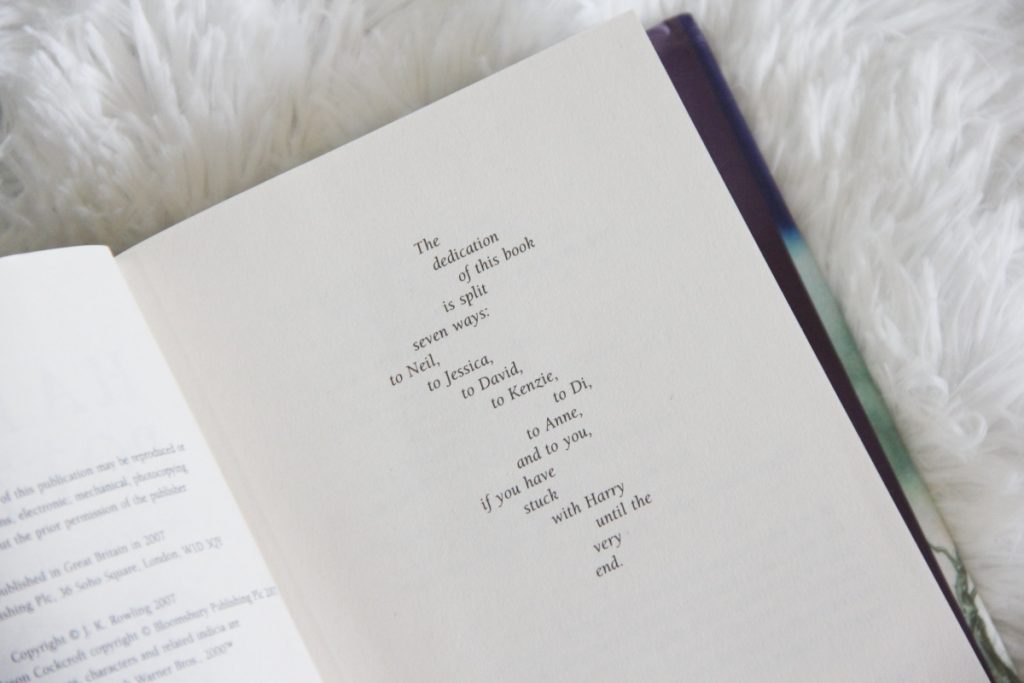 of this publication may be reproduced or
electronic, mechanical, photocopying
the prior permission of the publisher
published in Great Britain in 2007
Plc, 36 Soho Square, London, W1D 3QY
Copyright © J. K. Rowling 2007
Cockcroft copyright © Bloomsbury Publishing Plc
characters and related indicia are
Warner Bros., 2000™
The
dedication
of this book
is split
seven ways:
to Neil,
to Jessica,
to David,
to Kenzie,
to Di,
to Anne,
and to you,
if you have
stuck
with Harry
until the
very
end.